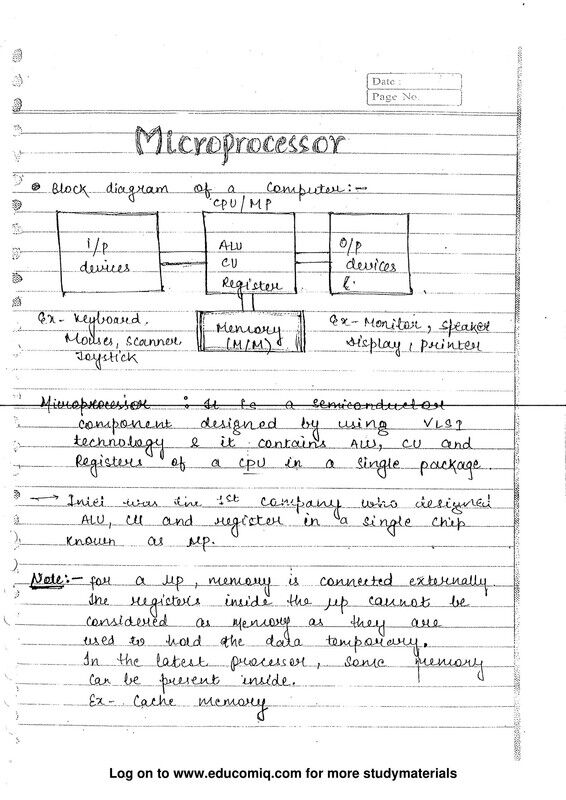 Date :
Page No.
Microprocessor
Block diagram of a Computer:-
CPU/MP
I/p
devices
ALU
CU
Register
O/p
devices
Ex- Keyboard,
Mouses, Scanner
Joystick
Memory
(M/M)
Ex- Monitor, speaker
display, printer
Microprocessor : It is a semiconductor
component designed by using VLSI
technology & it contains ALU, CU and
Registers of a CPU in a single package.
→ Intel was the 1st company who designed
ALU, CU and register in a single chip
known as μp.
Note:- for a μp, memory is connected externally.
The registers inside the μp cannot be
considered as memory as they are
used to hold the data temporary.
In the latest processor, some memory
can be present inside.
Ex- Cache memory
Log on to www.educomiq.com for more studymaterials